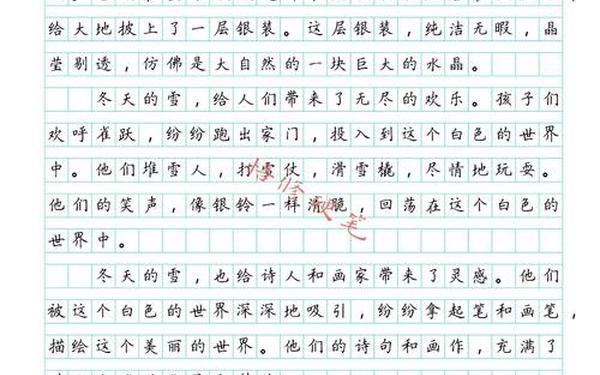 给大地披上了一层银装。这层银装，纯洁无暇，晶
莹剔透，仿佛是大自然的一块巨大的水晶。
冬天的雪，给人们带来了无尽的欢乐。孩子们
欢呼雀跃，纷纷跑出家门，投入到这个白色的世界
中。他们堆雪人，打雪仗，滑雪橇，尽情地玩耍。
他们的笑声，像银铃一样清脆，回荡在这个白色的
世界中。
冬天的雪，也给诗人和画家带来了灵感。他们
被这个白色的世界深深地吸引，纷纷拿起笔和画笔，
描绘这个美丽的世界。他们的诗句和画作，充满了
修硬笔